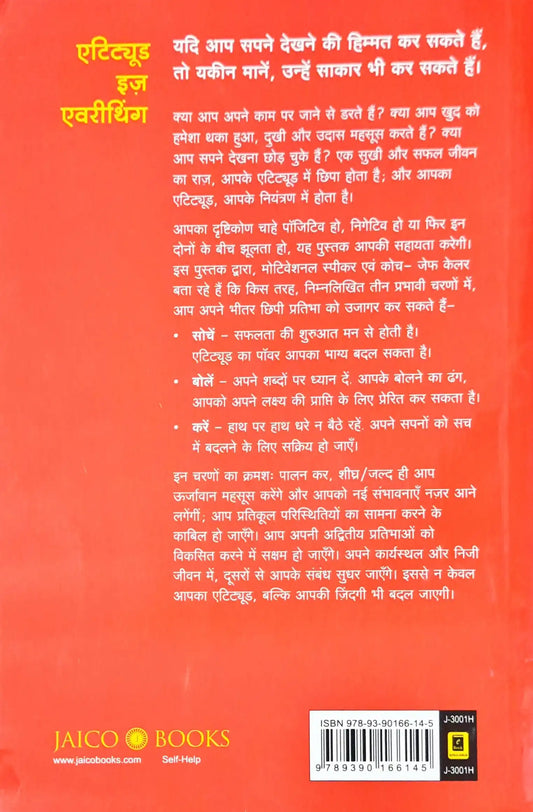 एटिट्यूड
इज़
एवरीथिंग
यदि आप सपने देखने की हिम्मत कर सकते हैं,
तो यकीन मानें, उन्हें साकार भी कर सकते हैं।
क्या आप अपने काम पर जाने से डरते हैं? क्या आप खुद को
हमेशा थका हुआ, दुखी और उदास महसूस करते हैं? क्या
आप सपने देखना छोड़ चुके हैं? एक सुखी और सफल जीवन
का राज़, आपके एटिट्यूड में छिपा होता है; और आपका
एटिट्यूड, आपके नियंत्रण में होता है।
आपका दृष्टिकोण चाहे पॉजिटिव हो, निगेटिव हो या फिर इन
दोनों के बीच झूलता हो, यह पुस्तक आपकी सहायता करेगी।
इस पुस्तक द्वारा, मोटिवेशनल स्पीकर एवं कोच– जेफ केलर
बता रहे हैं कि किस तरह, निम्नलिखित तीन प्रभावी चरणों में,
आप अपने भीतर छिपी प्रतिभा को उजागर कर सकते हैं–
• सोचें – सफलता की शुरुआत मन से होती है।
एटिट्यूड का पॉवर आपका भाग्य बदल सकता है।
• बोलें – अपने शब्दों पर ध्यान दें. आपके बोलने का ढंग,
आपको अपने लक्ष्य की प्राप्ति के लिए प्रेरित कर सकता है।
• करें – हाथ पर हाथ धरे न बैठे रहें. अपने सपनों को सच
में बदलने के लिए सक्रिय हो जाएँ।
इन चरणों का क्रमशः पालन कर, शीघ्र/जल्द ही आप
ऊर्जावान महसूस करेंगे और आपको नई संभावनाएँ नज़र आने
लगेंगीं; आप प्रतिकूल परिस्थितियों का सामना करने के
काबिल हो जाएँगे। आप अपनी अद्वितीय प्रतिभाओं को
विकसित करने में सक्षम हो जाएँगे। अपने कार्यस्थल और निजी
जीवन में, दूसरों से आपके संबंध सुधर जाएँगे। इससे न केवल
आपका एटिट्यूड, बल्कि आपकी ज़िंदगी भी बदल जाएगी।
JAICO BOOKS
www.jaicobooks.com Self-Help
ISBN 978-93-90166-14-5
9 789390 166145
J-3001H
J-3001H